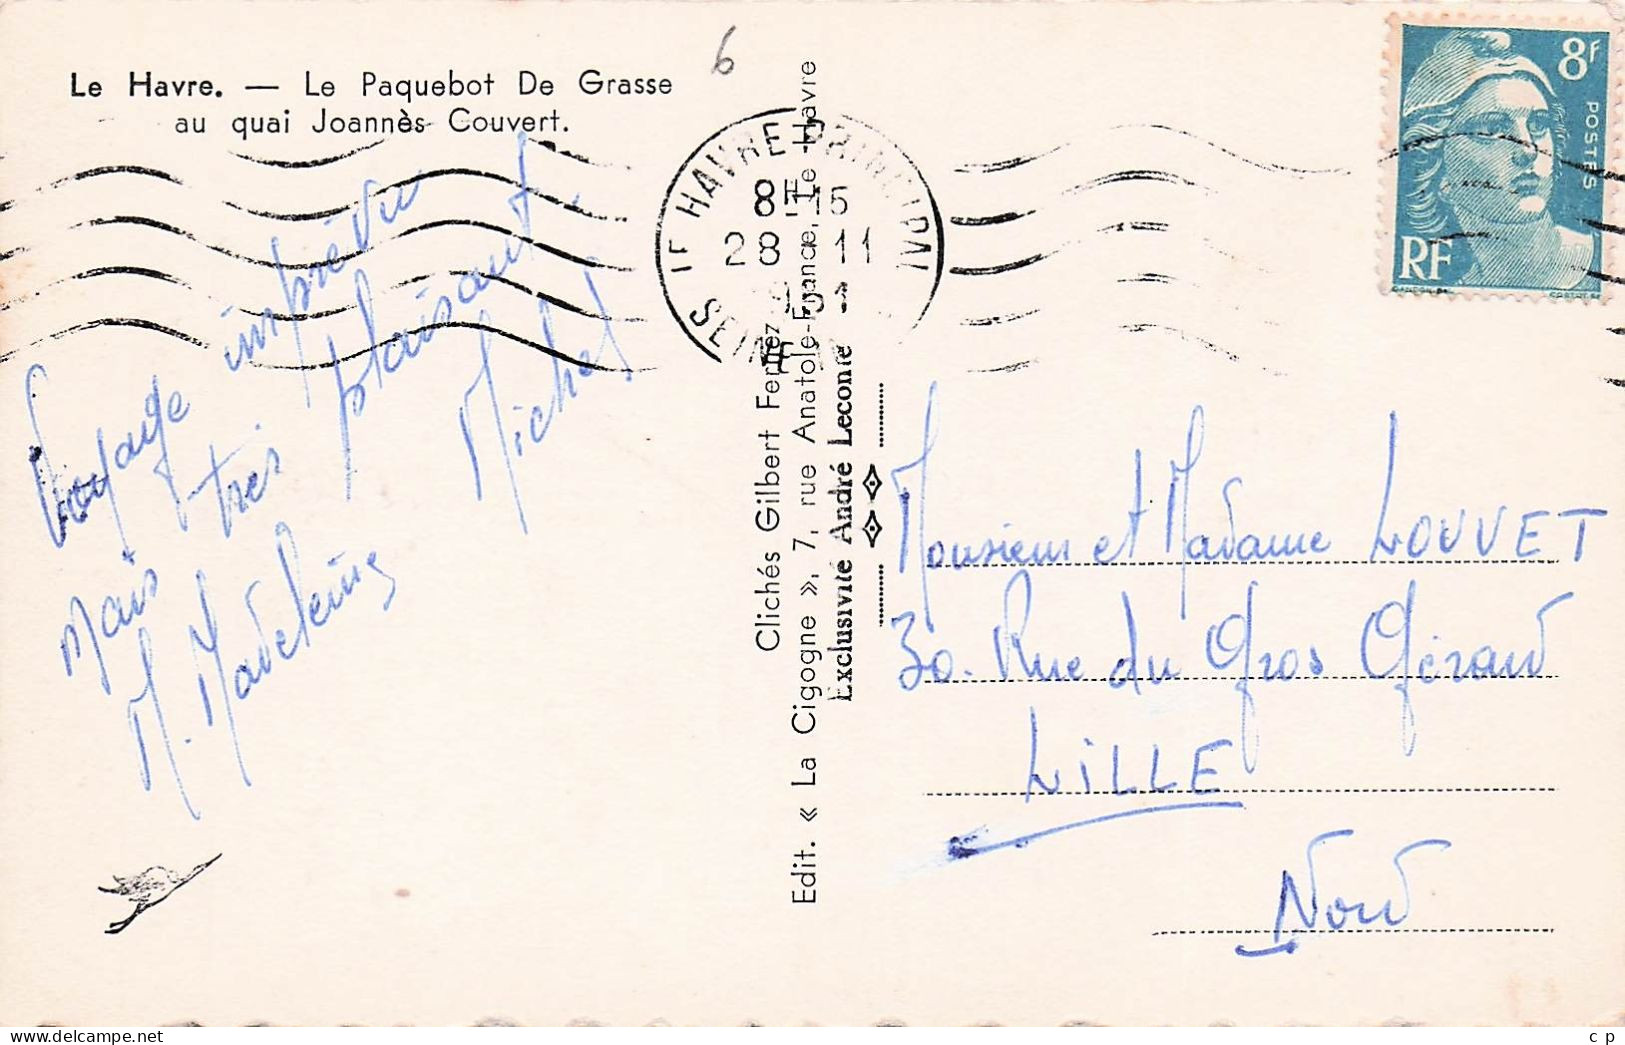 Le Havre. — Le Paquebot De Grasse
au quai Joannès Couvert.
6
LE HAVRE PRINCIPAL
8H15
28 11
1951
SEINE
8F
POSTES
RF
Voyage imprévu
mais très plaisant.
Michel
M. Madeleine
Clichés Gilbert Fernez
Edit. « La Cigogne », 7, rue Anatole-France, Le Havre
Exclusivité André Leconte
Monsieur et Madame LOUVET
30. Rue du Gros Gérard
LiLLE
Nord
c p